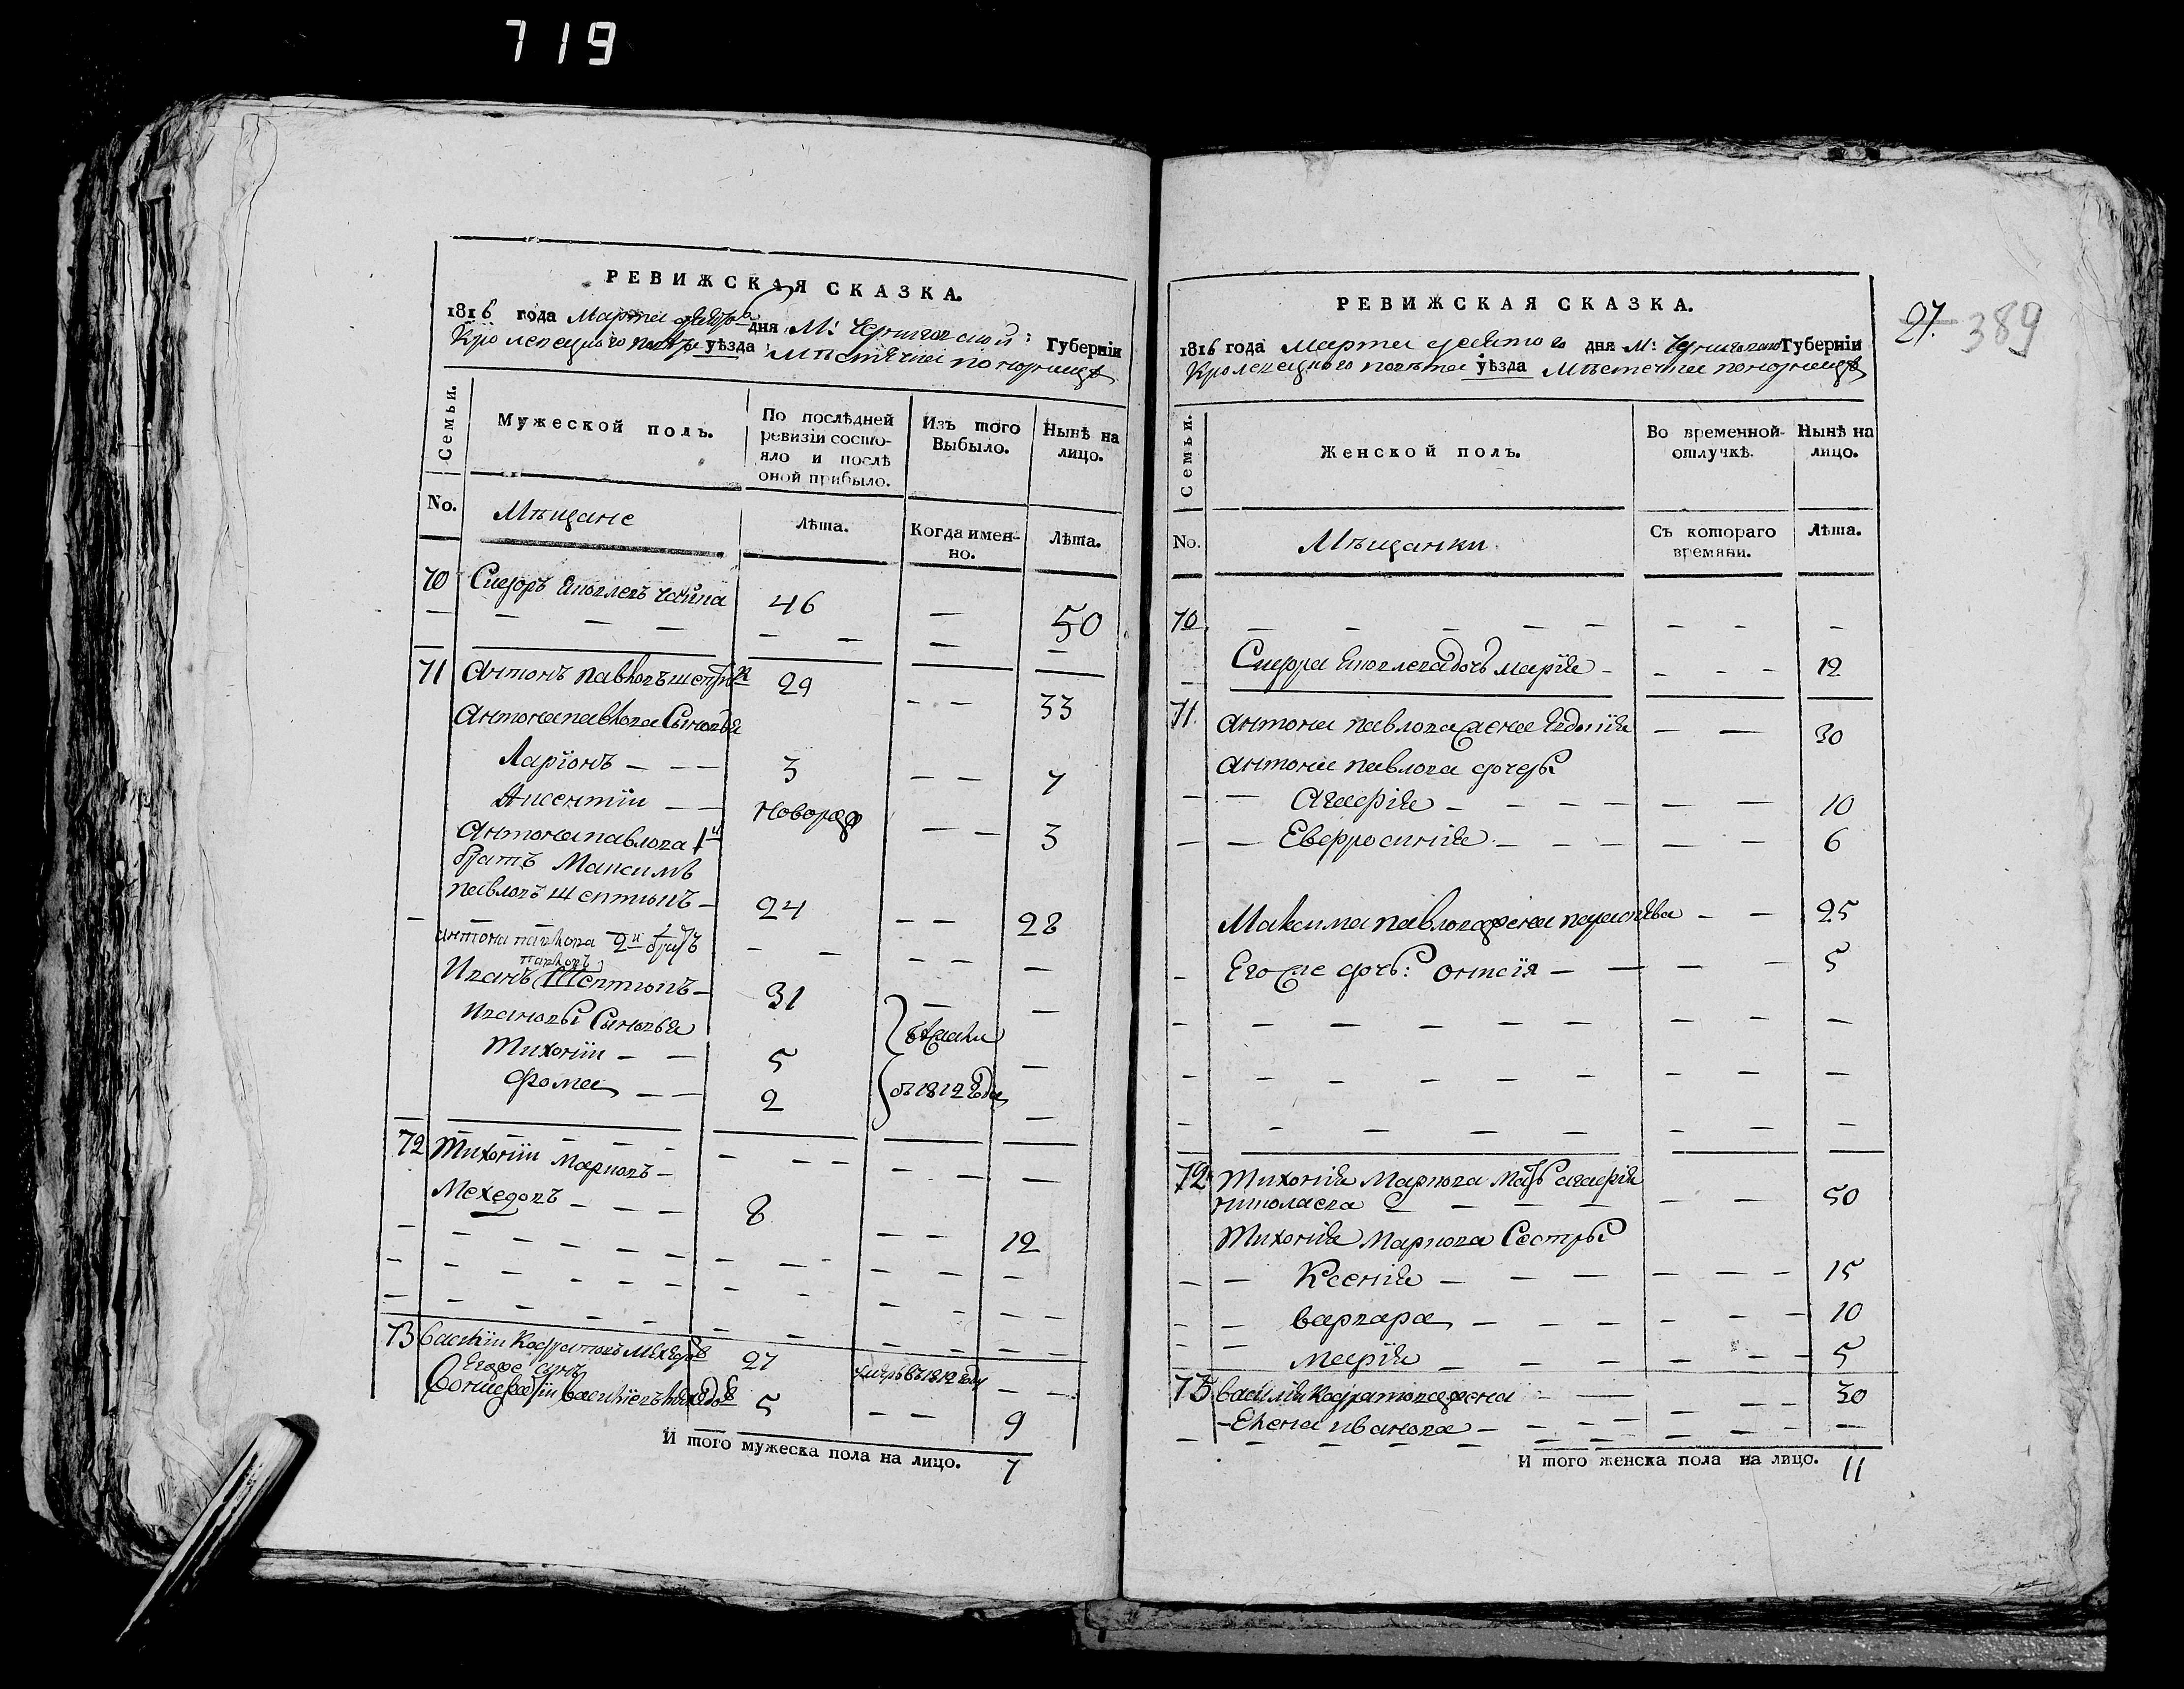 719
РЕВИЖСКАЯ СКАЗКА.
1816 года Марта дня М: Черниговской: Губерніи
Кролевецкого повѣта уѣзда Мѣстечка Понорницѣ
Семьи.
Мужеской полъ.
По послѣдней ревизіи состо-
яло и послѣ оной прибыло.
Изъ того Выбыло.
Нынѣ на лицо.
No.
Мѣщане
Лѣта.
Когда имен-
но.
Лѣта.
70 Сидоръ 46 — 50
71 Антонъ Павловъ 29 — — 33
Антона Павлова Сыновья
Ларіонъ — — — 3 — — 7
Аксентіи — — Новорожд — — 3
Антона Павлова 1й
братъ Максимъ
Павловъ Шептюкъ — 24 — — 28
Антона Павлова 2й братъ
Павловъ
Иванъ Шептюкъ — 31 —
Ивановы Сыновья
Тихоніи — — 5 —
Фома — — 2 въ 1812 года —
72 Тихоніи Марковъ —
Мехедовъ — — — 8 — — 12
73 Василіи Кодратовъ Мехедовъ 27 умеръ въ 1812 году — —
Егоже сынъ
Василіевъ 5 — — 9
И того мужеска пола на лицо. 7
27. 389
РЕВИЖСКАЯ СКАЗКА.
1816 года Марта десятого дня М: Черниговской Губерніи
Кролевецкого повѣта уѣзда Мѣстечка Понорницѣ
Семьи.
Женской полъ.
Во временной отлучкѣ.
Нынѣ на лицо.
No.
Мѣщанки.
Съ котораго времяни.
Лѣта.
70
Сидора Яковлева дочь Марія — — — — 12
71. Антона Павлова жена Евдокія — — 30
Антона Павлова дочеры
— — Агафія — — — — — — 10
— — Евфросинія — — — — — 6
Максима Павлова жена Параскева — — 25
— Его же дочь: — — — — 5
72. Тихонія Маркова Мать Агафія
Николаева — — — — — 50
Тихонія Маркова Сестры
— — Ксенія — — — — — — 15
— — Варвара — — — — — — 10
— — Марія — — — — — — 5
73 Василія Кодратова жена — — — — 30
— Елена Иванова —
И того женска пола на лицо. 11